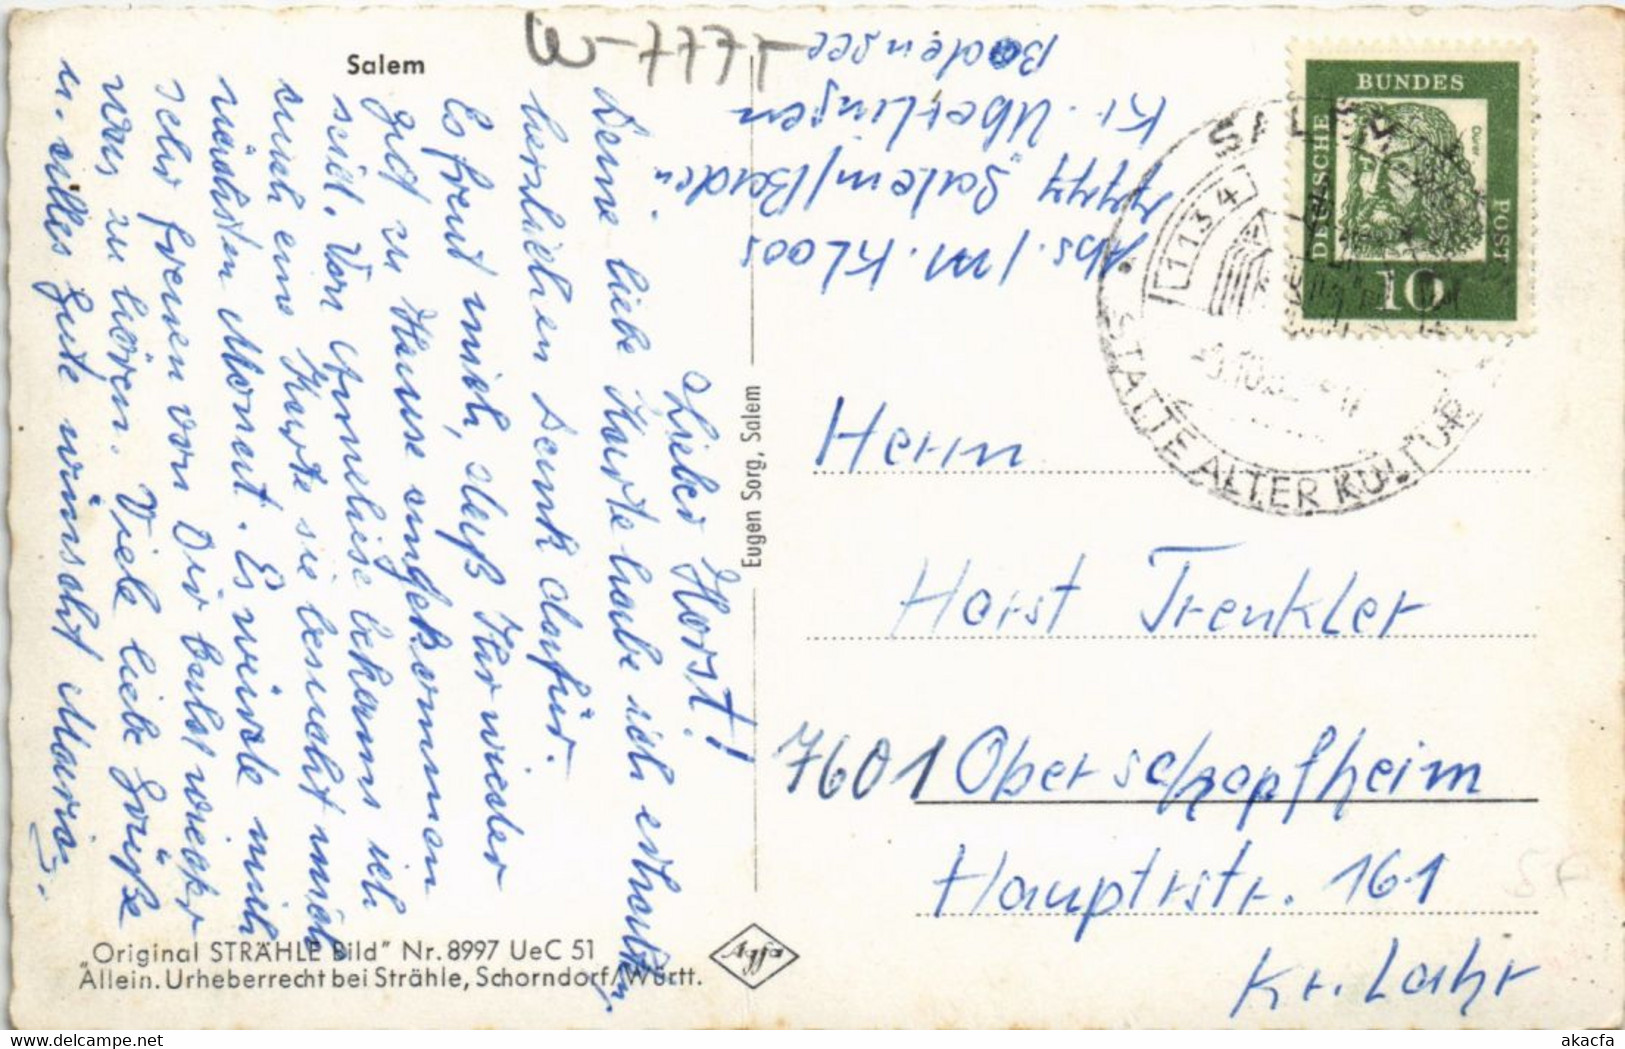 Salem
W-777T
Lieber Horst!
Deine liebe Karte habe ich erhalten,
herzlichen Dank dafür.
Es freut mich, daß Ihr wieder
gut zu Hause angekommen
seid. Von Anneliese bekam ich
auch eine Karte sie besucht mich
nächsten Monat. Es würde mich
sehr freuen von Dir bald wieder
was zu hören. Viele liebe Grüße
u. alles Gute wünscht Maria.
Abs./M. Kloos
7777 Salem/Baden
Kr. Überlingen
Bodensee
Eugen Sorg, Salem
DEUTSCHE
BUNDES
POST
Dürer
10
SALEM
1134
STÄTTE ALTER KULTUR
Herrn
Horst Trenkler
7601 Oberschopfheim
Hauptstr. 161
Kr. Lahr
„Original STRÄHLE Bild" Nr. 8997 UeC 51
Allein. Urheberrecht bei Strähle, Schorndorf/Württ.
Agfa
akacfa